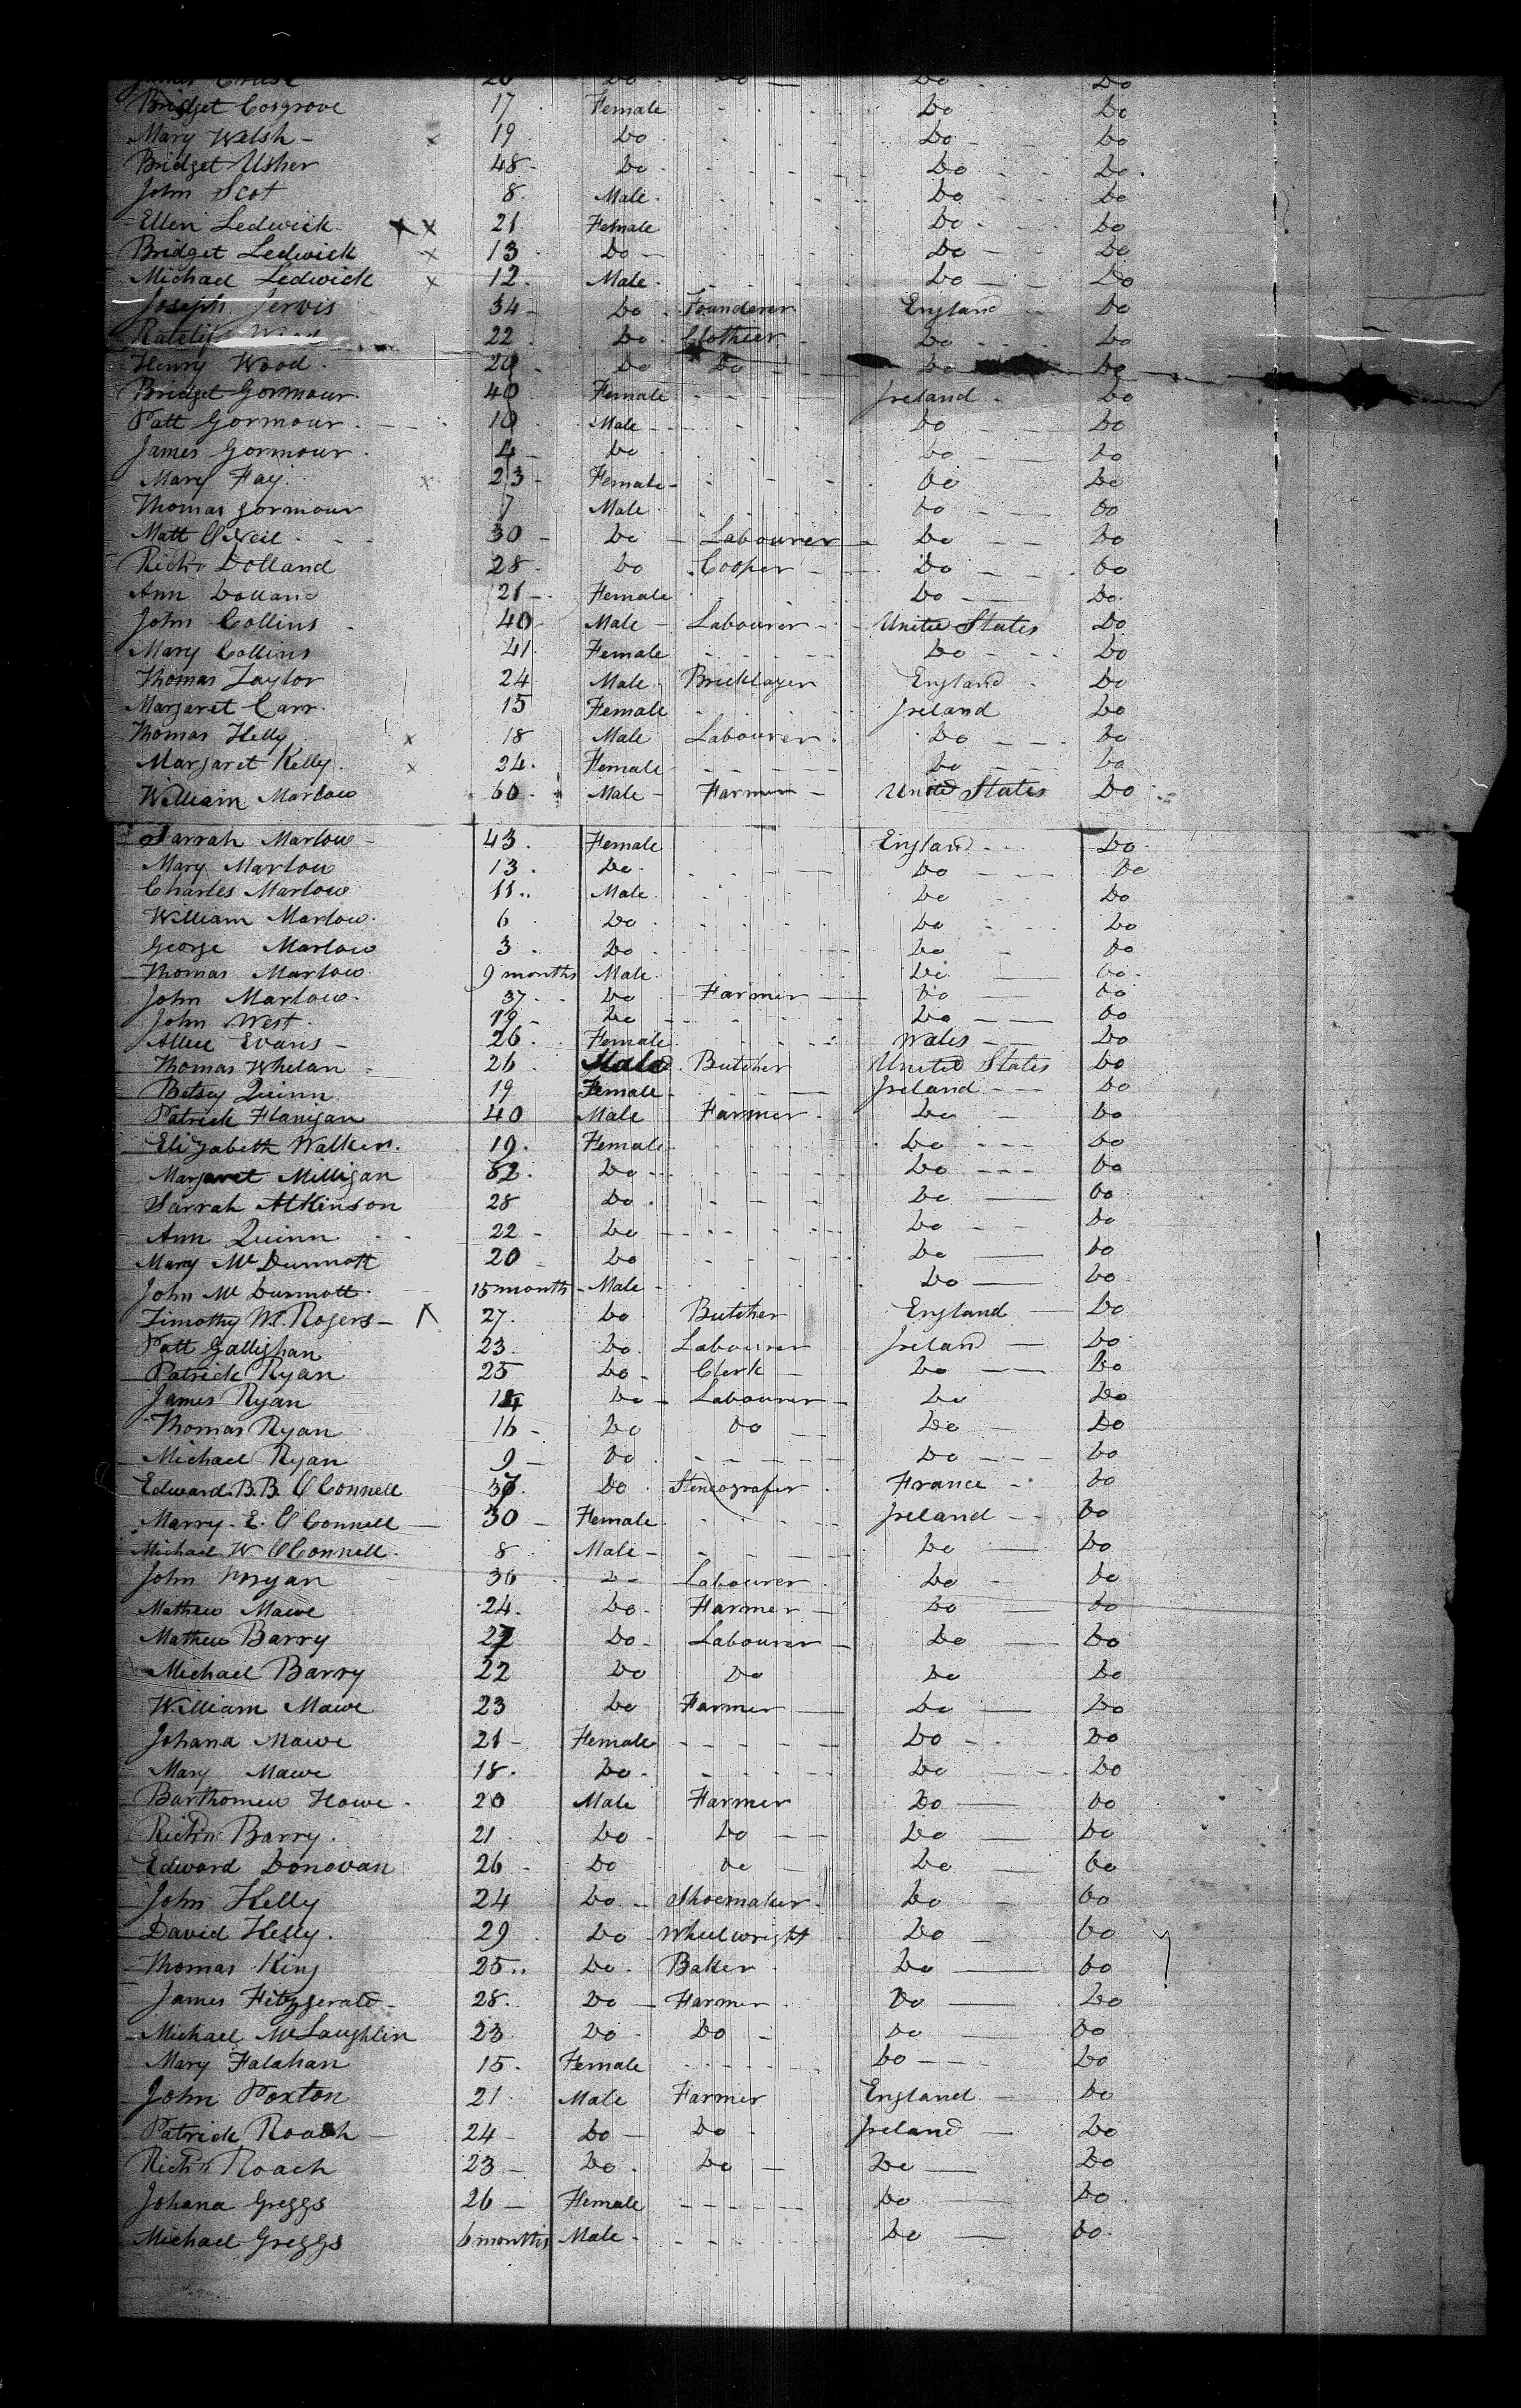 Bridget Cosgrove 17 Female Do Do
Mary Walsh 19 Do Do Do
Bridget Usher 48 Do Do Do
John Scot 8 Male Do Do
Ellen Ledwick 21 Female Do Do
Bridget Ledwick 13 Do Do Do
Michael Ledwick 12 Male Do Do
Joseph Jervis 34 Do Founderer England Do
22 Do Clothier Do Do
Henry Wood Do Do Do Do
Bridget Gormour 40 Female Ireland Do
Patt Gormour 10 Male Do Do
James Gormour 4 Do Do Do
Mary Fay 23 Female Do Do
Thomas Gormour 7 Male Do Do
Matt O'Neil 30 Do Labourer Do Do
Richd Dolland 28 Do Cooper Do Do
Ann Dolland 21 Female Do Do
John Collins 40 Male Labourer United States Do
Mary Collins 41 Female Do Do
Thomas Taylor 24 Male Bricklayer England Do
Margaret Carr 15 Female Ireland Do
Thomas Kelly 18 Male Labourer Do Do
Margaret Kelly 24 Female Do Do
William Marlow 60 Male Farmer United States Do
Sarrah Marlow 43 Female England Do
Mary Marlow 13 Do Do Do
Charles Marlow 11 Male Do Do
William Marlow 6 Do Do Do
George Marlow 3 Do Do Do
Thomas Marlow 9 months Male Do Do
John Marlow 37 Do Farmer Do Do
John West 19 Do Do Do
Evans 26 Female Wales Do
Thomas Whelan 26 Male Butcher United States Do
Betsey Quinn 19 Female Ireland Do
Patrick Flanigan 40 Male Farmer Do Do
Elizabeth Walker 19 Female Do Do
Margaret Milligan 52 Do Do Do
Sarrah Atkinson 28 Do Do Do
Ann Quinn 22 Do Do Do
Mary McDurmott 20 Do Do Do
John McDurmott 15 months Male Do Do
Timothy W. Rogers 27 Do Butcher England Do
Patt Gallighan 23 Do Labourer Ireland Do
Patrick Ryan 25 Do Clerk Do Do
James Ryan 14 Do Labourer Do Do
Thomas Ryan 16 Do Do Do Do
Michael Ryan 9 Do Do Do
Edward B.B. O'Connell 37 Do Stenografer France Do
Marry E. O'Connell 30 Female Ireland Do
Michael W O'Connell 8 Male Do Do
John 36 Do Labourer Do Do
Mathew Mawe 24 Do Farmer Do Do
Mathew Barry 27 Do Labourer Do Do
Michael Barry 22 Do Do Do Do
William Mawe 23 Do Farmer Do Do
Johana Mawe 21 Female Do Do
Mary Mawe 18 Do Do Do
Barthomew Howe 20 Male Farmer Do Do
Richd Barry 21 Do Do Do Do
Edward Donovan 26 Do Do Do Do
John Kelly 24 Do Shoemaker Do Do
David Kelly 29 Do Wheelwright Do Do
Thomas King 25 Do Baker Do Do
James Fitzgerald 28 Do Farmer Do Do
Michael McLaughlin 23 Do Do Do Do
Mary Falahan 15 Female Do Do
John Poxton 21 Male Farmer England Do
Patrick Roach 24 Do Do Ireland Do
Richd Roach 23 Do Do Do Do
Johana Greggs 26 Female Do Do
Michael Greggs 6 months Male Do Do